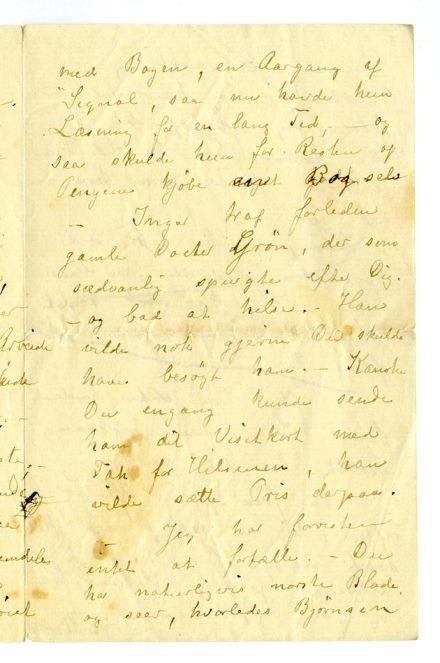 med Bogen, en Aargang af
"Signal, saa nu havde hun
Læsning for en lang Tid, – og
saa skulde hun for Resten af
Pengene kjøbe noget Bog selv
– Inga traf forleden
gamle Doctor Grøn, der som
sædvanlig spurgte efter Dig.
– og bad at hilse. – Han
vilde nok gjerne Du skulde
have besøgt ham. – Kanske
Du engang kunde sende
ham dit Visitkort med
Tak for Hilsenen, han
vilde sætte Pris derpaa.
– Jeg har forresten
intet at fortælle. – Du
har naturligvis norske Blade,
og seer, hvorledes Bjørnson